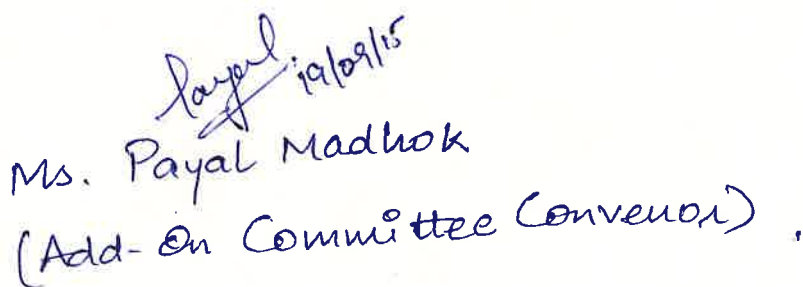 Payal.
19/09/15
Ms. Payal Madhok
(Add-On Committee Convenor).